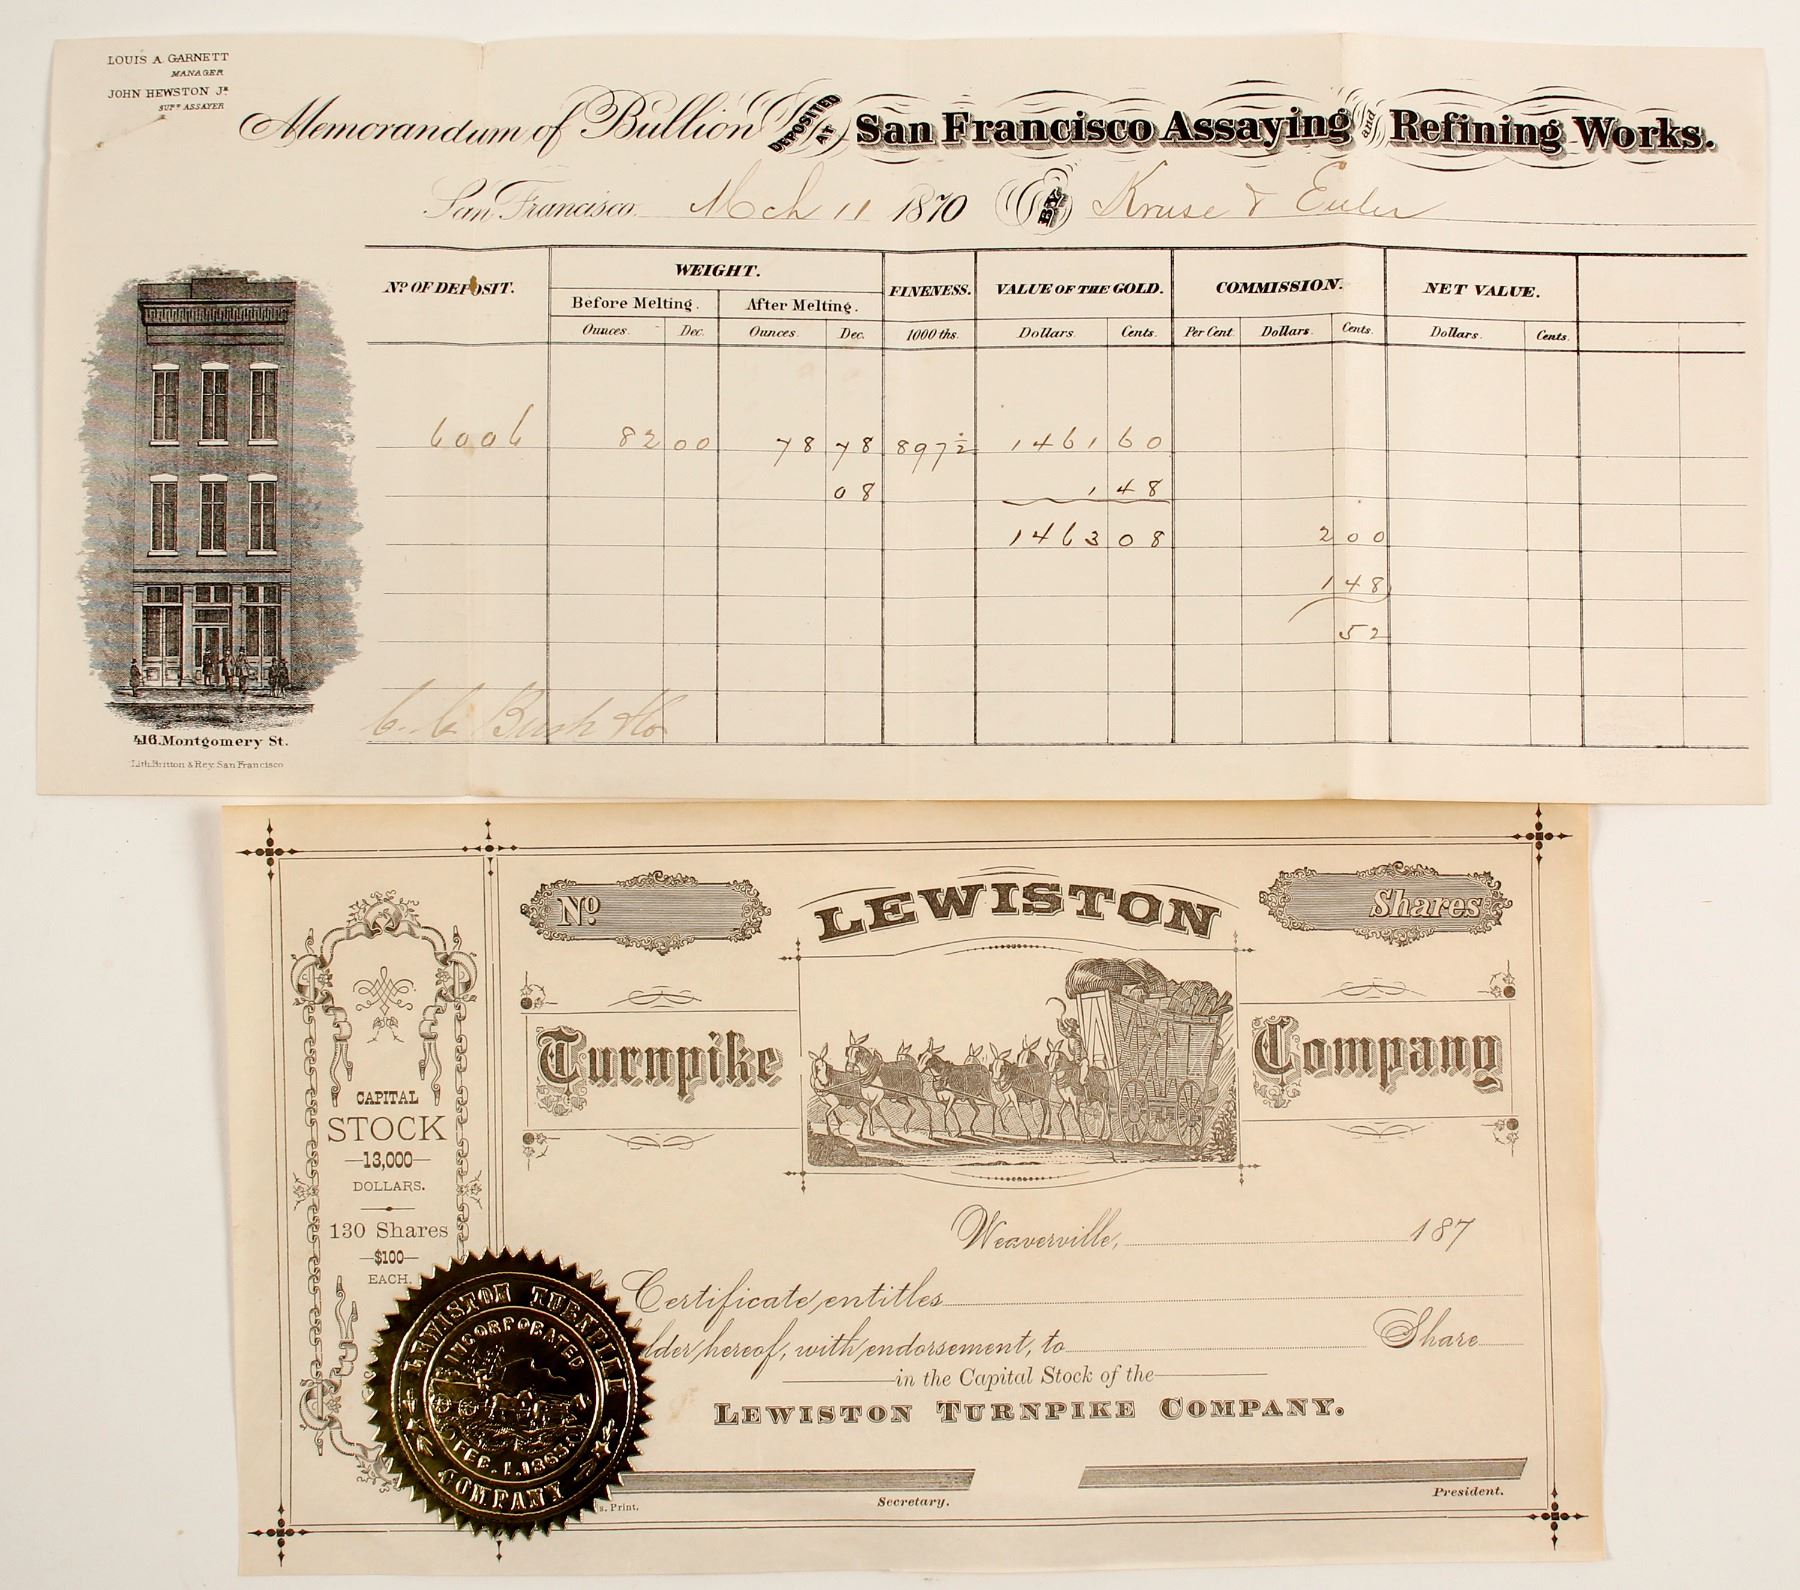 LOUIS A. GARNETT
MANAGER
JOHN HEWSTON Jr.
SUPT ASSAYER
Memorandum of Bullion DEPOSITED AT San Francisco Assaying and Refining Works.
San Francisco Mch 11 1870 BY Kruse & Euler
No. OF DEPOSIT. WEIGHT. FINENESS. VALUE OF THE GOLD. COMMISSION. NET VALUE.
Before Melting. After Melting.
Ounces. Dec. Ounces. Dec. 1000 ths. Dollars. Cents. Per Cent. Dollars. Cents. Dollars. Cents.
6006 82 00 78 78 897½ 1461 60
08 1 48
1463 08 2 00
1 48
52
C. C. Bush & Co
416. Montgomery St.
Lith. Britton & Rey. San Francisco
No. LEWISTON Shares
Turnpike Company
CAPITAL
STOCK
13,000
DOLLARS.
130 Shares
$100
EACH.
Weaverville, 187
Certificate entitles
lder hereof, with endorsement, to Share
in the Capital Stock of the
LEWISTON TURNPIKE COMPANY.
LEWISTON TURNPIKE
INCORPORATED
COMPANY
s. Print.
Secretary.
President.